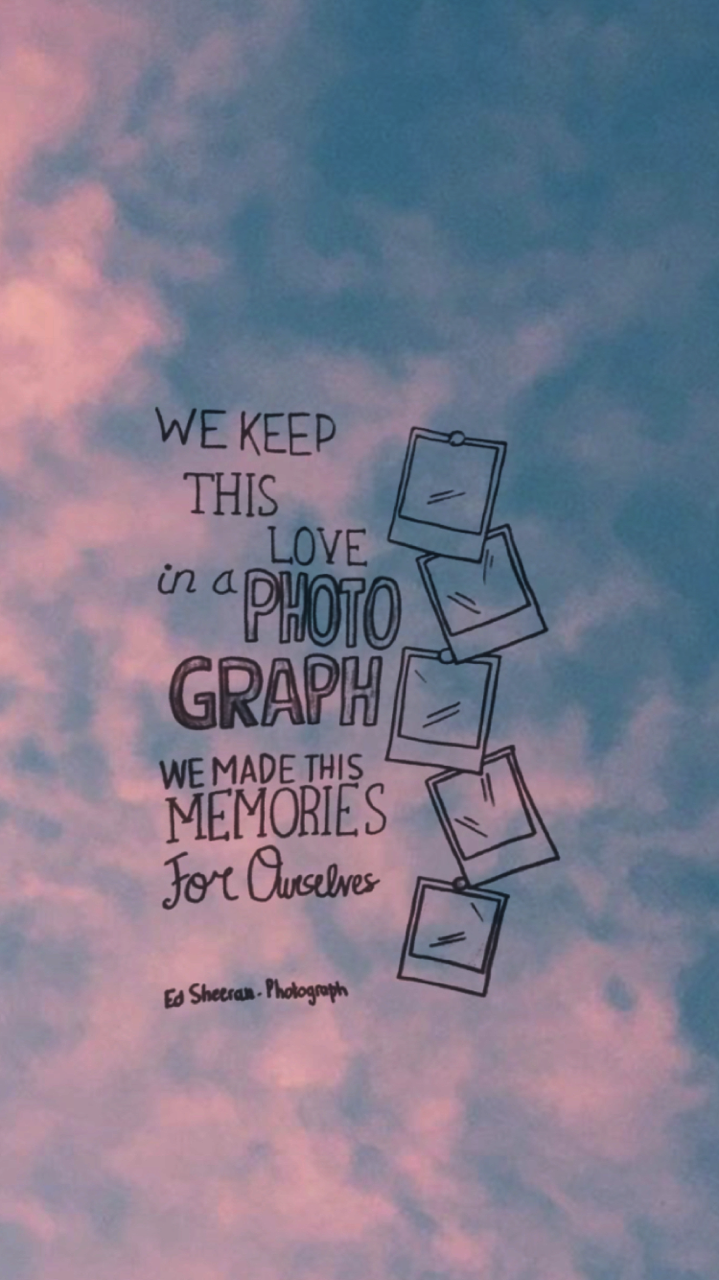 WE KEEP
THIS
LOVE
in a PHOTO
GRAPH
WE MADE THIS
MEMORIES
For Ourselves
Ed Sheeran - Photograph